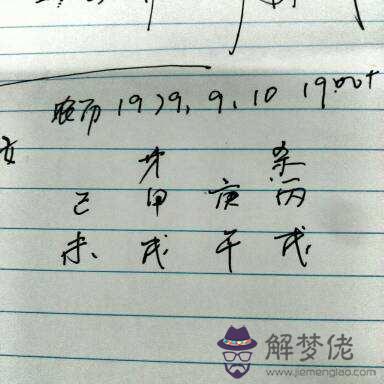 农历 1979, 9, 10 1900+
女
才 杀
己 甲 庚 丙
未 戌 午 戌
解梦佬
www.jiemenglao.com